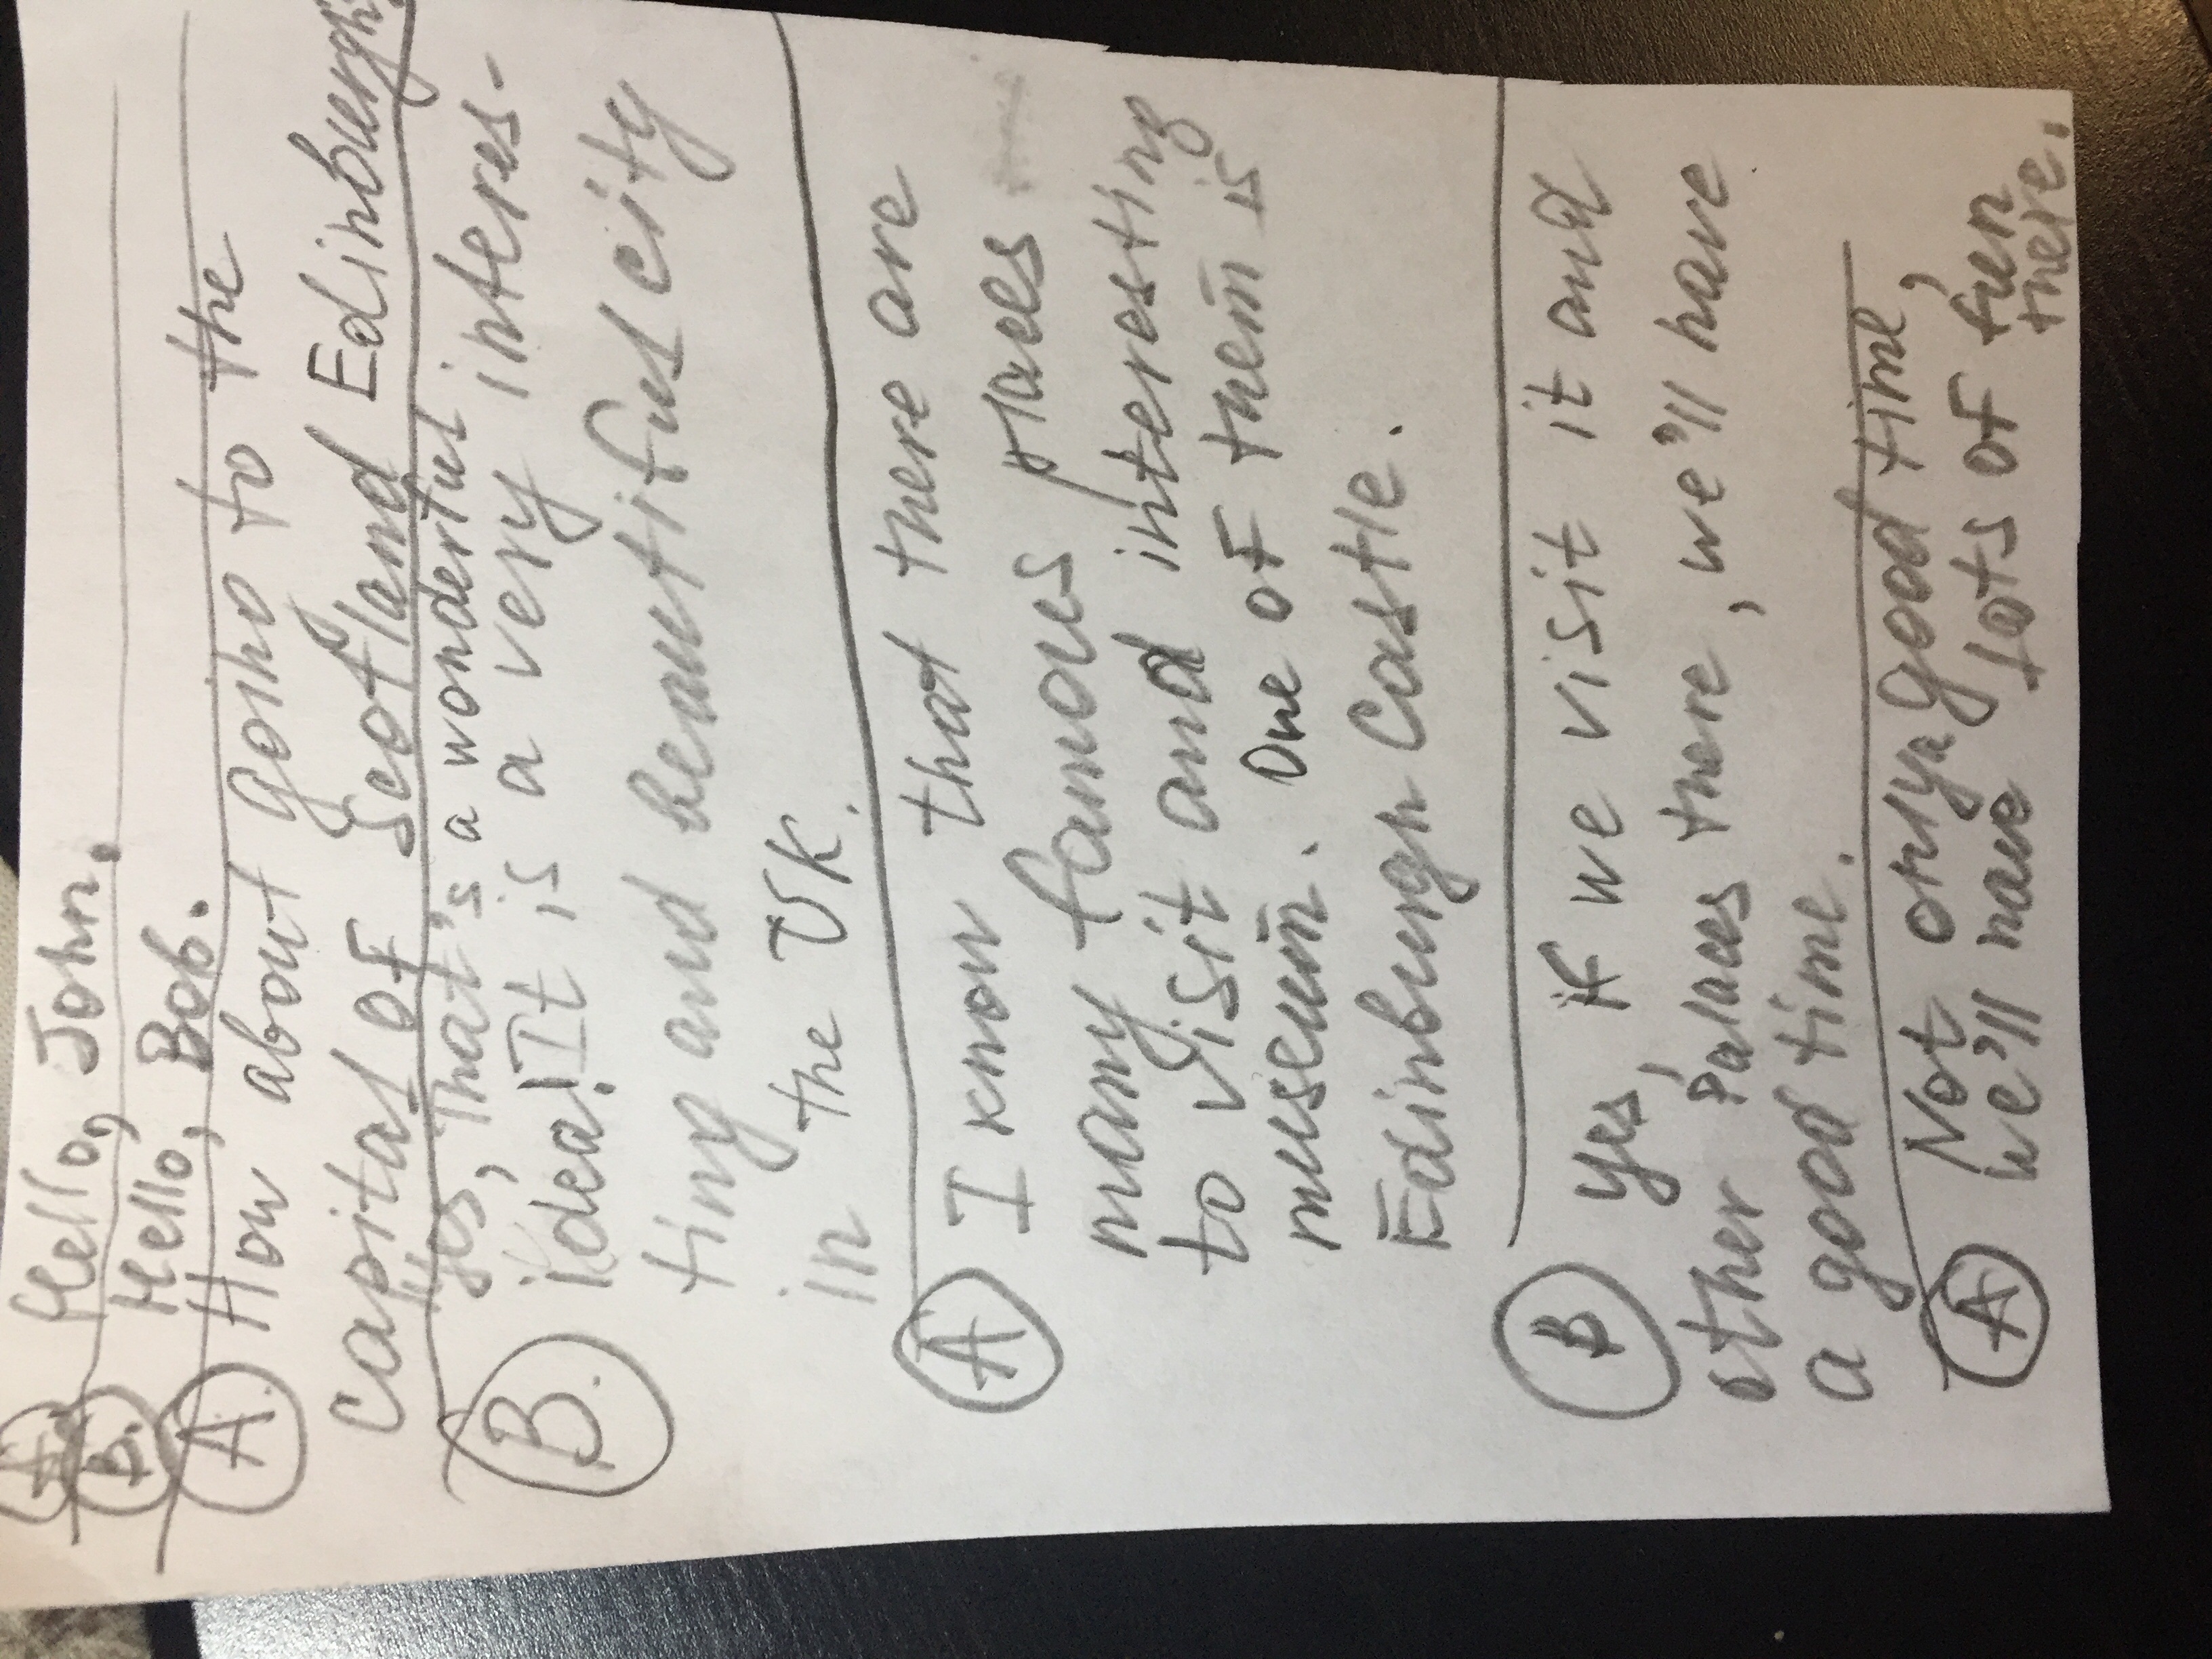 A. Hello, John.
B. Hello, Bob.
A. How about going to the
capital of Scotland Edinbourgh?
Yes, That's a wonderful
B. idea! It is a very interes-
ting and beautiful city
in the UK.
A I know that there are
many famous places
to visit and interesting
museum. One of them is
Edinburgh Castle.
B yes, if we visit it and
other palaces there, we'll have
a good time.
A Not only a good time,
we'll have lots of fun
there.